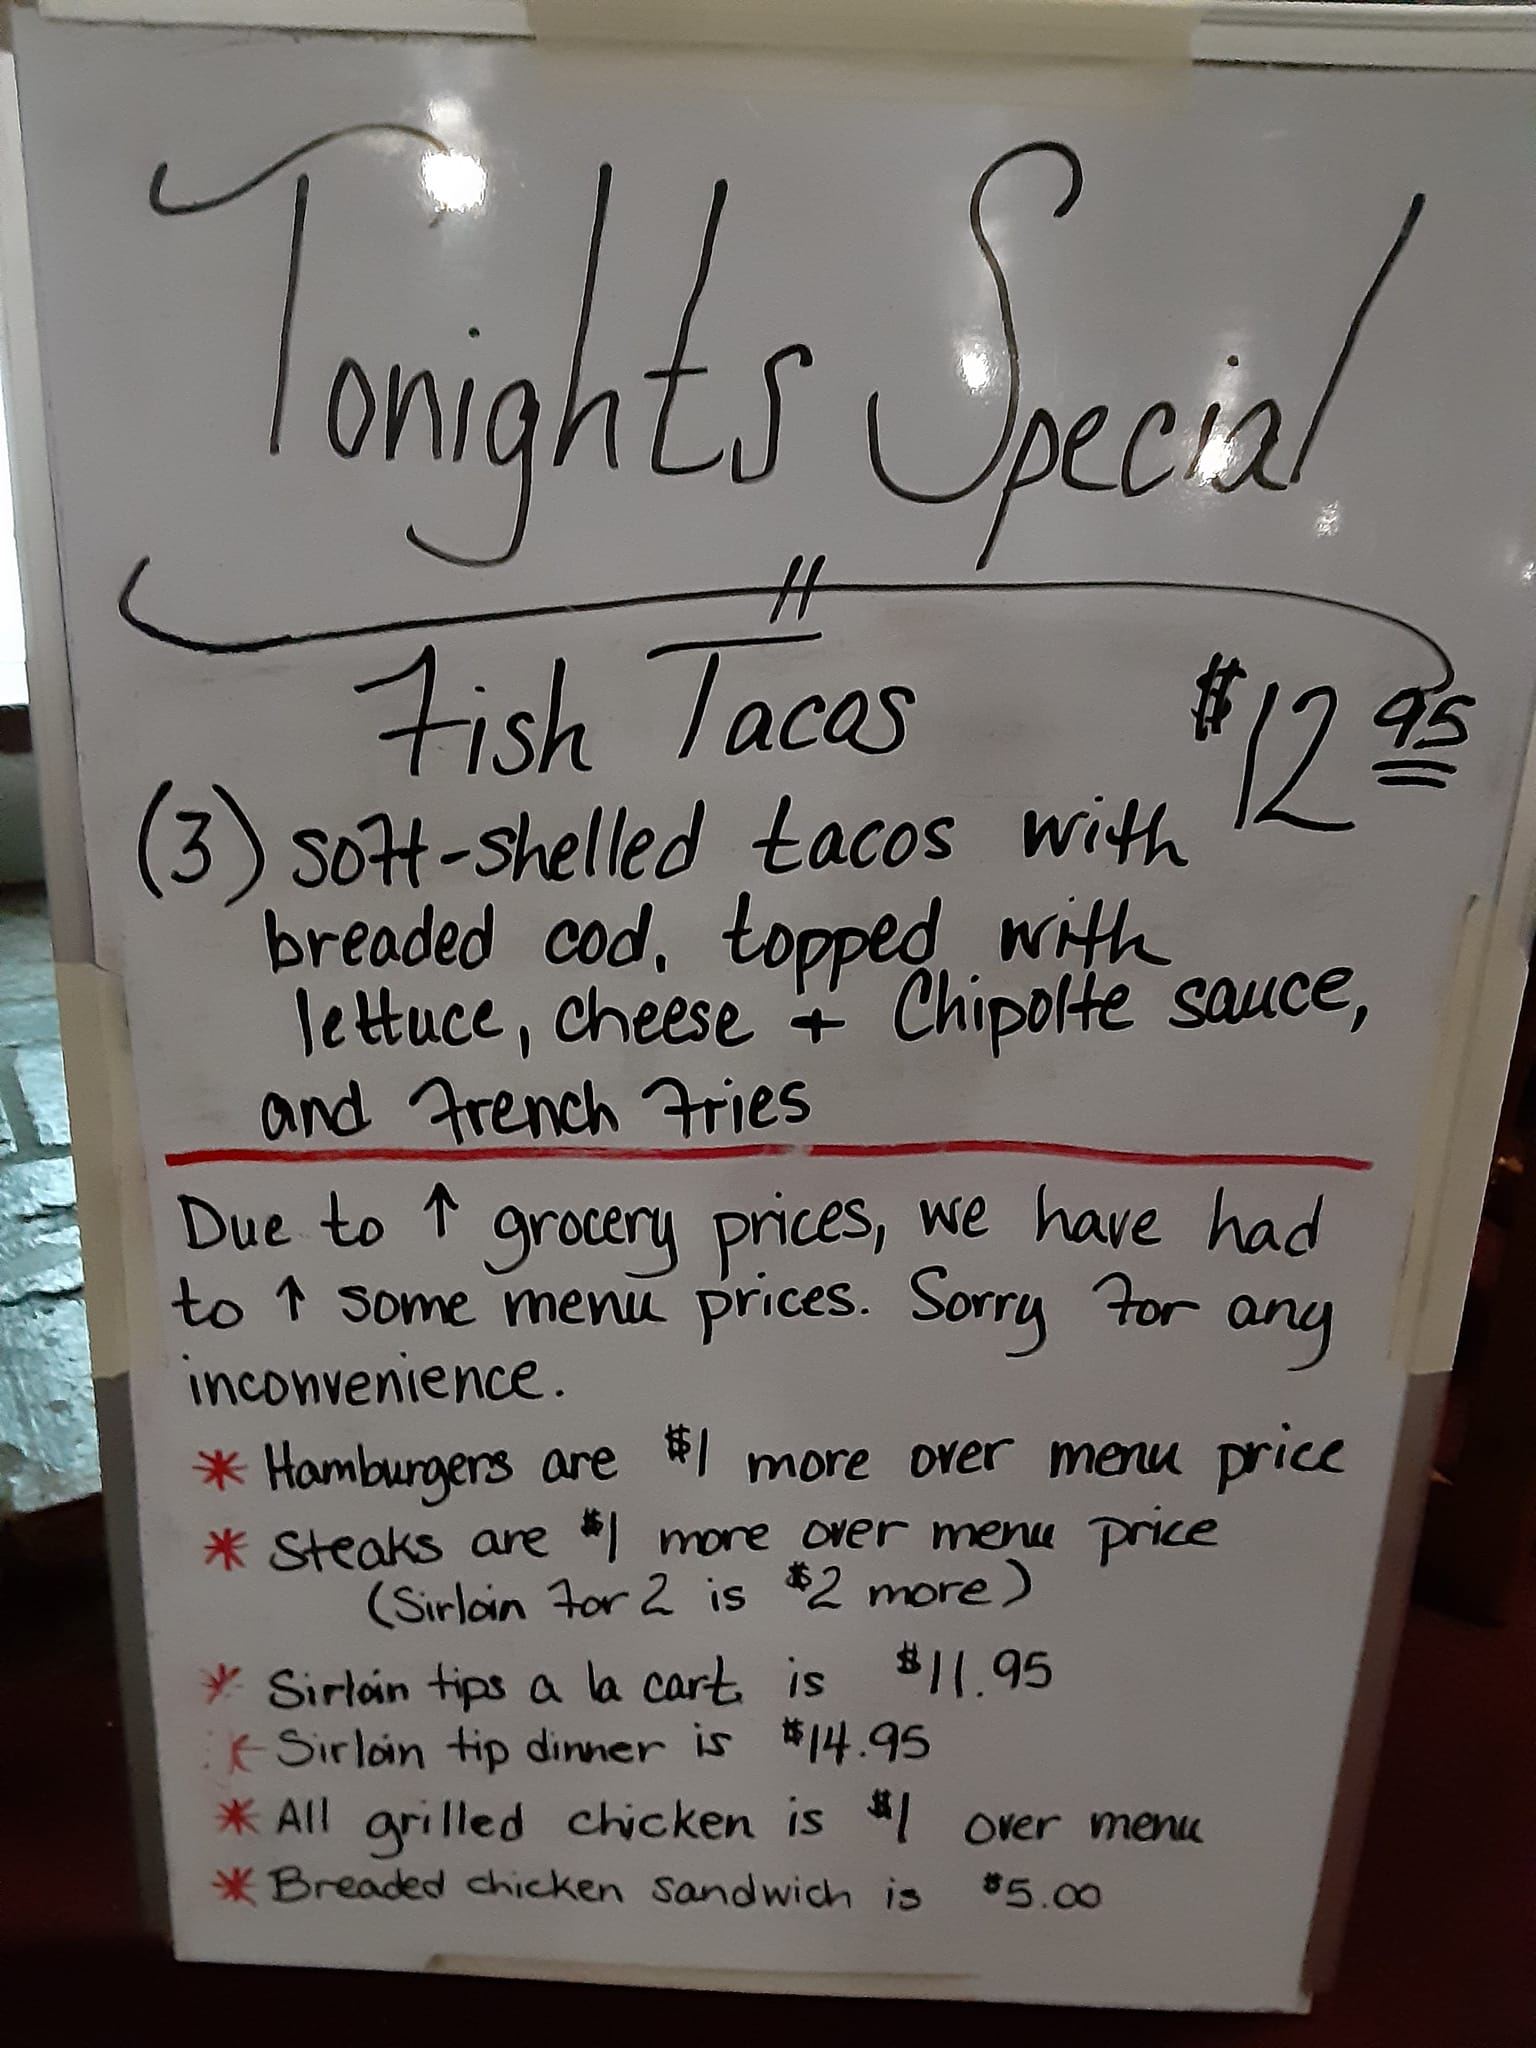 Tonights Special
Fish Tacos $12 95
(3) soft-shelled tacos with
breaded cod, topped with
lettuce, cheese + Chipolte sauce,
and French Fries
Due to ↑ grocery prices, we have had
to ↑ some menu prices. Sorry for any
inconvenience.
* Hamburgers are $1 more over menu price
* Steaks are $1 more over menu price
(Sirloin for 2 is $2 more)
* Sirloin tips a la cart. is $11.95
* Sirloin tip dinner is $14.95
* All grilled chicken is $1 over menu
* Breaded chicken sandwich is $5.00